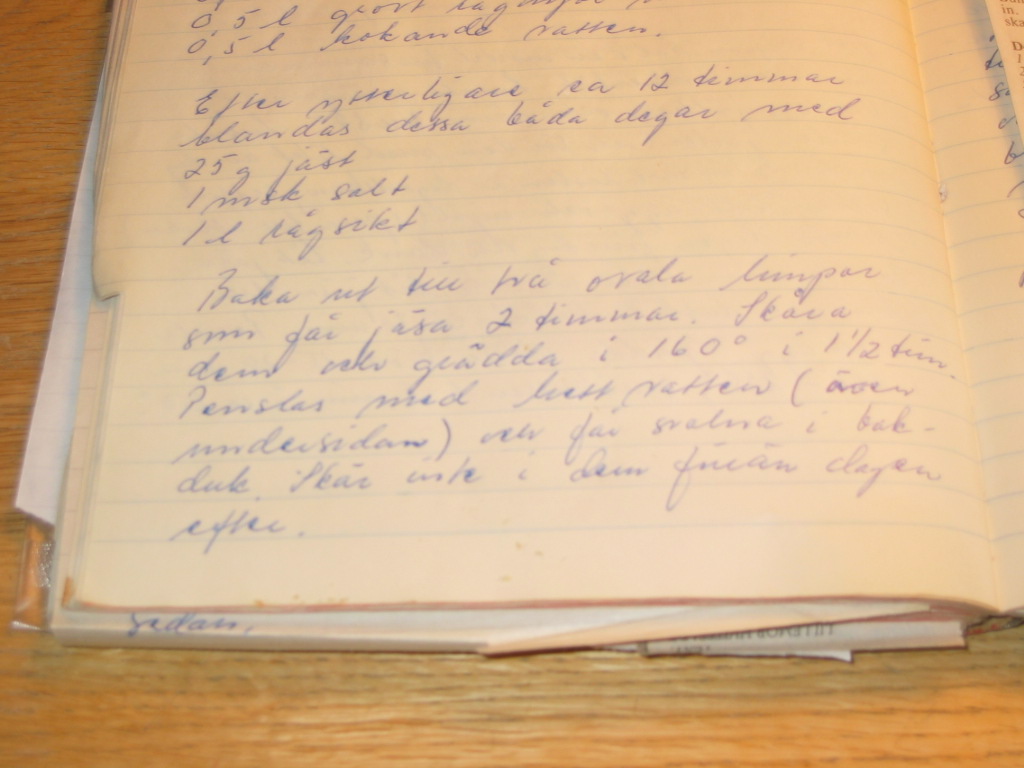 0,5 l grovt rågmjöl
0,5 l kokande vatten.
Efter ytterligare ca 12 timmar
blandas dessa båda degar med
25 g jäst
1 msk salt
1 l rågsikt
Baka ut till två ovala limpor
som får jäsa 2 timmar. Skåra
dem och grädda i 160° i 1 1/2 tim.
Penslas med hett vatten (även
undersidan) och får svalna i bak-
duk. Skär inte i dem förrän dagen
efter.
sedan.